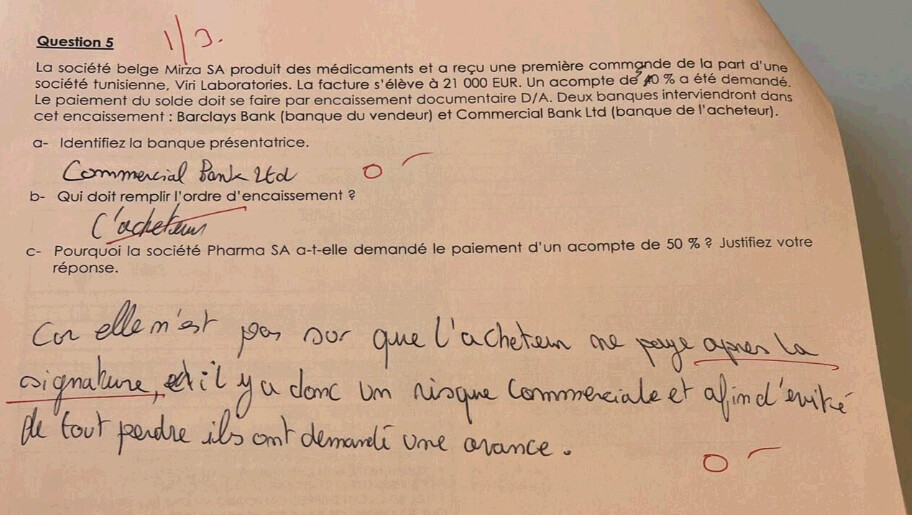 Question 5
1/3.
La société belge Mirza SA produit des médicaments et a reçu une première commande de la part d'une
société tunisienne, Viri Laboratories. La facture s'élève à 21 000 EUR. Un acompte de 10 % a été demandé.
Le paiement du solde doit se faire par encaissement documentaire D/A. Deux banques interviendront dans
cet encaissement : Barclays Bank (banque du vendeur) et Commercial Bank Ltd (banque de l'acheteur).
a- Identifiez la banque présentatrice.
Commercial Bank Ltd
b- Qui doit remplir l'ordre d'encaissement ?
L'acheteur
c- Pourquoi la société Pharma SA a-t-elle demandé le paiement d'un acompte de 50 % ? Justifiez votre
réponse.
Car elle n'est pas sur que l'acheteur ne paye apres la
signature, et il y a donc un risque commerciale et afin d'evité
de tout perdre ils ont demandé une avance.